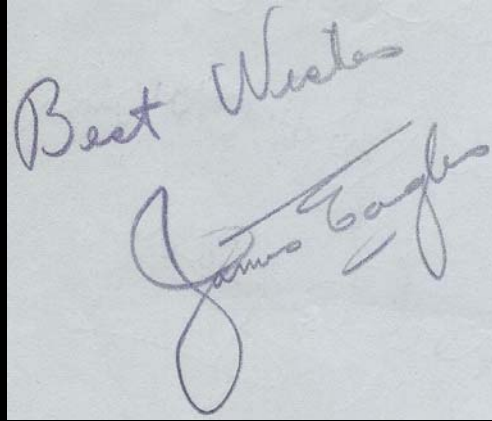 Best Wishes
James Eagles